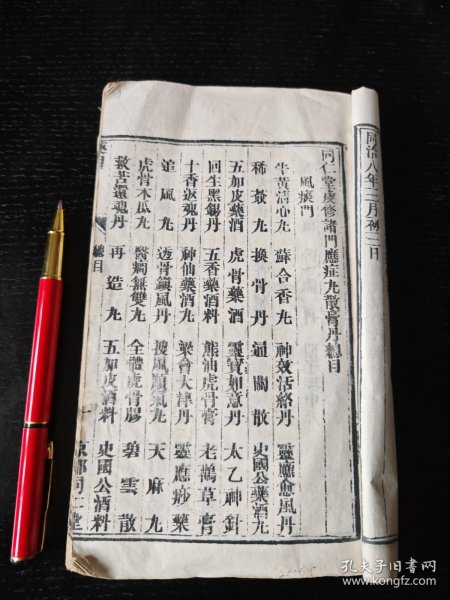 同治八年三月初二日
同仁堂虔修諸門應症丸散膏丹總目
風痰門
牛黃清心丸 蘇合香丸 神效活絡丹 靈應愈風丹
稀薟丸 換骨丹 通關散 史國公藥酒丸
五加皮藥酒 虎骨藥酒 靈寶如意丹 太乙神針
回生黑錫丹 五香藥酒料 熊油虎骨膏 老鸛草膏
十香返魂丹 神仙藥酒丸 衆會大津丹 靈應痧藥
追風丸 透骨鎮風丹 搜風順氣丸 天麻丸
虎骨木瓜丸 醫癇無雙丸 全體虎骨膠 碧雲散
救苦還魂丹 再造丸 五加皮酒料 史國公酒料
總目
京都同仁堂
孔夫子旧书网
www.kongfz.com